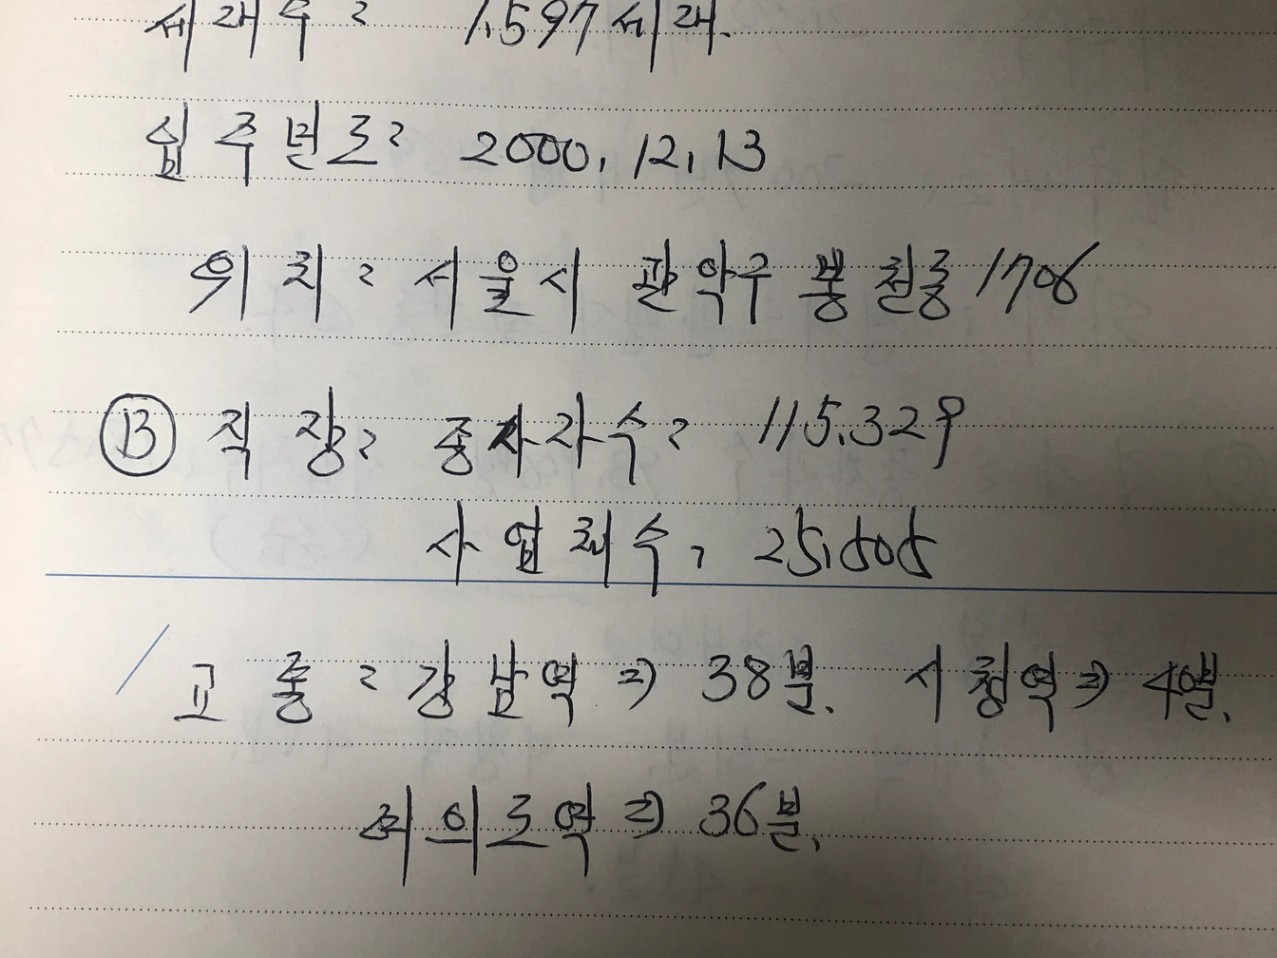 세대수: 1,597세대.
입주년도: 2000, 12, 13
위치: 서울시 관악구 봉천동 1706
Ⓑ 직장: 종사자수: 115,329
사업체수: 25,505
교통: 강남역 ⇒ 38분. 시청역 ⇒ 40분.
여의도역 ⇒ 36분.